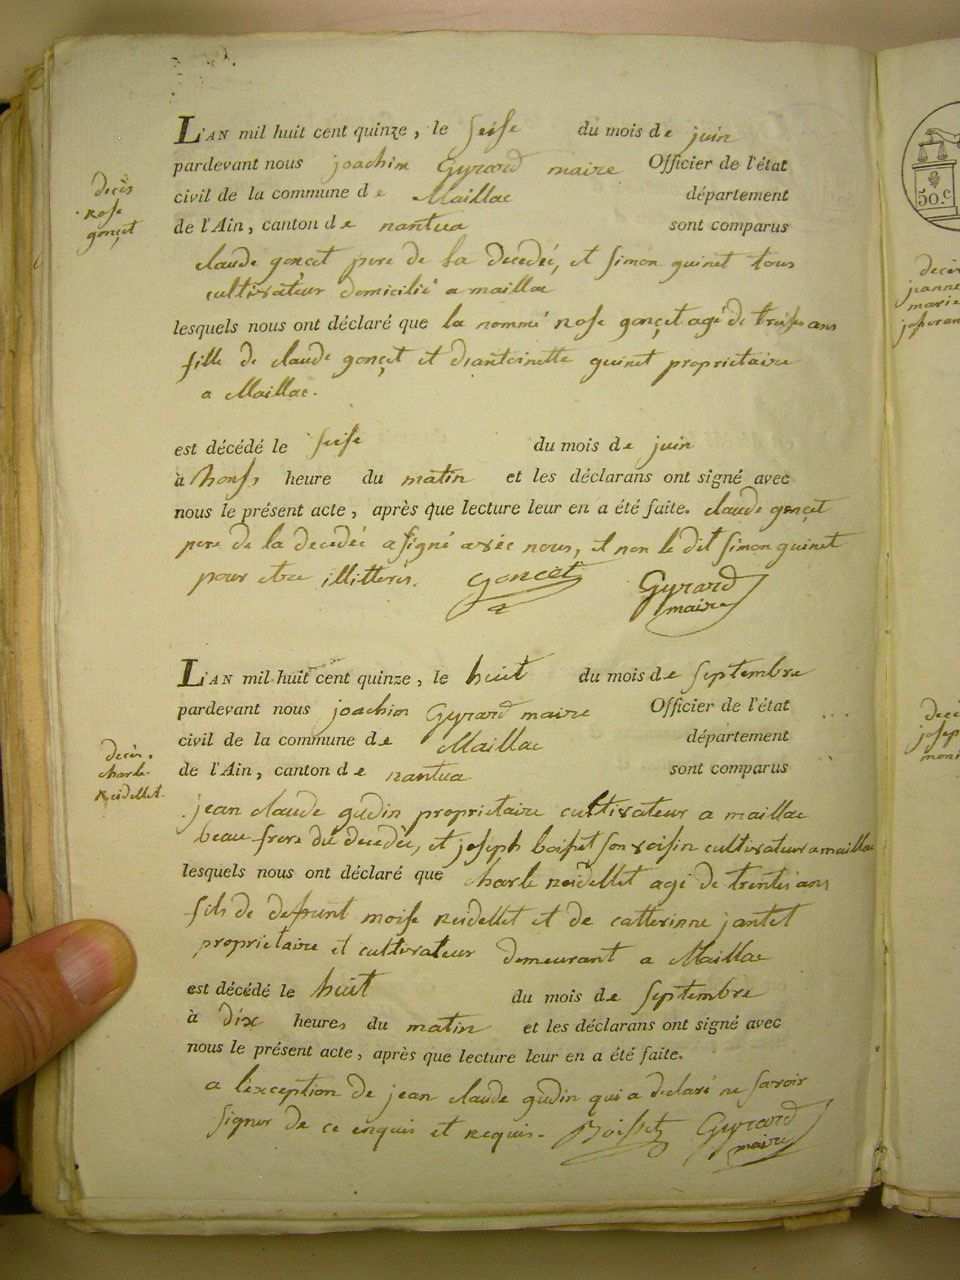 L'AN mil huit cent quinze, le seise du mois de juin
pardevant nous joachim Gyrard maire Officier de l'état
civil de la commune de Maillac département
de l'Ain, canton de nantua sont comparus
decès
Rose
gonçet
claude gonçet pere de la decedée, et simon guinet tous
cultivateur domicilié a maillac
lesquels nous ont déclaré que la nommé Rose gonçet agé de treise ans
fille de claude gonçet et d'antoinette guinet proprietaire
a Maillac.
est décédé le seise du mois de juin
à honse heure du matin et les déclarans ont signé avec
nous le présent acte, après que lecture leur en a été faite. claude gonçet
pere de la decedée a signé avéc nous, et non le dit simon guinet
pour etre illitteres. Goncet Gyrard
maire
L'AN mil huit cent quinze, le huit du mois de septembre
pardevant nous joachim Gyrard maire Officier de l'état
civil de la commune de Maillac département
de l'Ain, canton de nantua sont comparus
decès
charle
Reidellet.
jean claude gudin proprietaire cultivateur a maillac
beau frere du decedée, et joseph boisset son voisin cultivateur a maillac
lesquels nous ont déclaré que charle Reidellet agé de trente ans
fils de defunt moise Reidellet et de catterinne jantet
proprietaire et cultivateur demeurant a Maillac
est décédé le huit du mois de septembre
à dix heures du matin et les déclarans ont signé avec
nous le présent acte, après que lecture leur en a été faite.
a l'exception de jean claude gudin qui a declaré ne savoir
signer de ce enquis et requis. Boisset Gyrard
maire
50.c
decès
jeanne
marie
decè
josep
moni